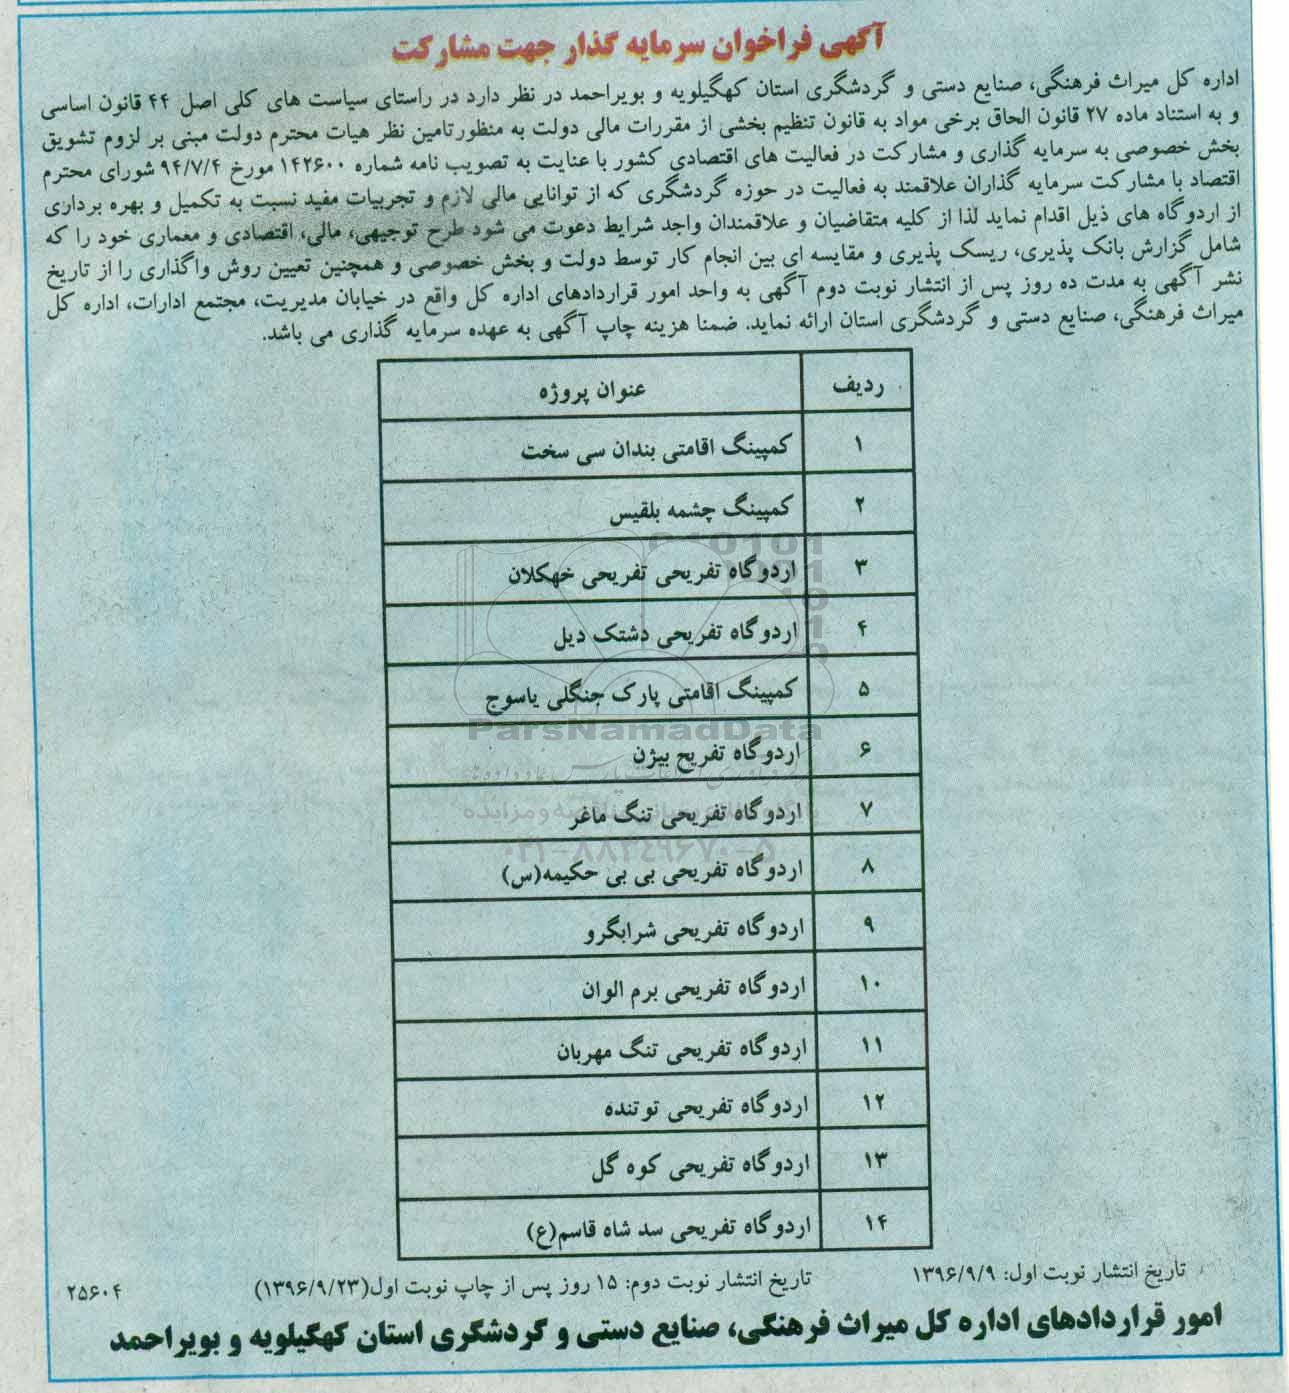 آگهی فراخوان سرمایه گذار جهت مشارکت
اداره کل میراث فرهنگی، صنایع دستی و گردشگری استان کهگیلویه و بویراحمد در نظر دارد در راستای سیاست های کلی اصل ۴۴ قانون اساسی
و به استناد ماده ۲۷ قانون الحاق برخی مواد به قانون تنظیم بخشی از مقررات مالی دولت به منظورتامین نظر هیات محترم دولت مبنی بر لزوم تشویق
بخش خصوصی به سرمایه گذاری و مشارکت در فعالیت های اقتصادی کشور با عنایت به تصویب نامه شماره ۱۴۲۶۰۰ مورخ ۹۴/۷/۴ شورای محترم
اقتصاد با مشارکت سرمایه گذاران علاقمند به فعالیت در حوزه گردشگری که از توانایی مالی لازم و تجربیات مفید نسبت به تکمیل و بهره برداری
از اردوگاه های ذیل اقدام نماید لذا از کلیه متقاضیان و علاقمندان واجد شرایط دعوت می شود طرح توجیهی، مالی، اقتصادی و معماری خود را که
شامل گزارش بانک پذیری، ریسک پذیری و مقایسه ای بین انجام کار توسط دولت و بخش خصوصی و همچنین تعیین روش واگذاری را از تاریخ
نشر آگهی به مدت ده روز پس از انتشار نوبت دوم آگهی به واحد امور قراردادهای اداره کل واقع در خیابان مدیریت، مجتمع ادارات، اداره کل
میراث فرهنگی، صنایع دستی و گردشگری استان ارائه نماید. ضمنا هزینه چاپ آگهی به عهده سرمایه گذاری می باشد.
ردیف عنوان پروژه
۱ کمپینگ اقامتی بندان سی سخت
۲ کمپینگ چشمه بلقیس
۳ اردوگاه تفریحی تفریحی خهکلان
۴ اردوگاه تفریحی دشتک دیل
۵ کمپینگ اقامتی پارک جنگلی یاسوج
ParsNamadData
۶ اردوگاه تفریح بیژن
۷ اردوگاه تفریحی تنگ ماغر
۰۲۱-۸۸۳۴۹۶۷۰-۵
۸ اردوگاه تفریحی بی بی حکیمه(س)
۹ اردوگاه تفریحی شرابگرو
۱۰ اردوگاه تفریحی برم الوان
۱۱ اردوگاه تفریحی تنگ مهربان
۱۲ اردوگاه تفریحی توتنده
۱۳ اردوگاه تفریحی کوه گل
۱۴ اردوگاه تفریحی سد شاه قاسم(ع)
تاریخ انتشار نوبت اول: ۱۳۹۶/۹/۹ تاریخ انتشار نوبت دوم: ۱۵ روز پس از چاپ نوبت اول(۱۳۹۶/۹/۲۳) ۲۵۶۰۴
امور قراردادهای اداره کل میراث فرهنگی، صنایع دستی و گردشگری استان کهگیلویه و بویراحمد